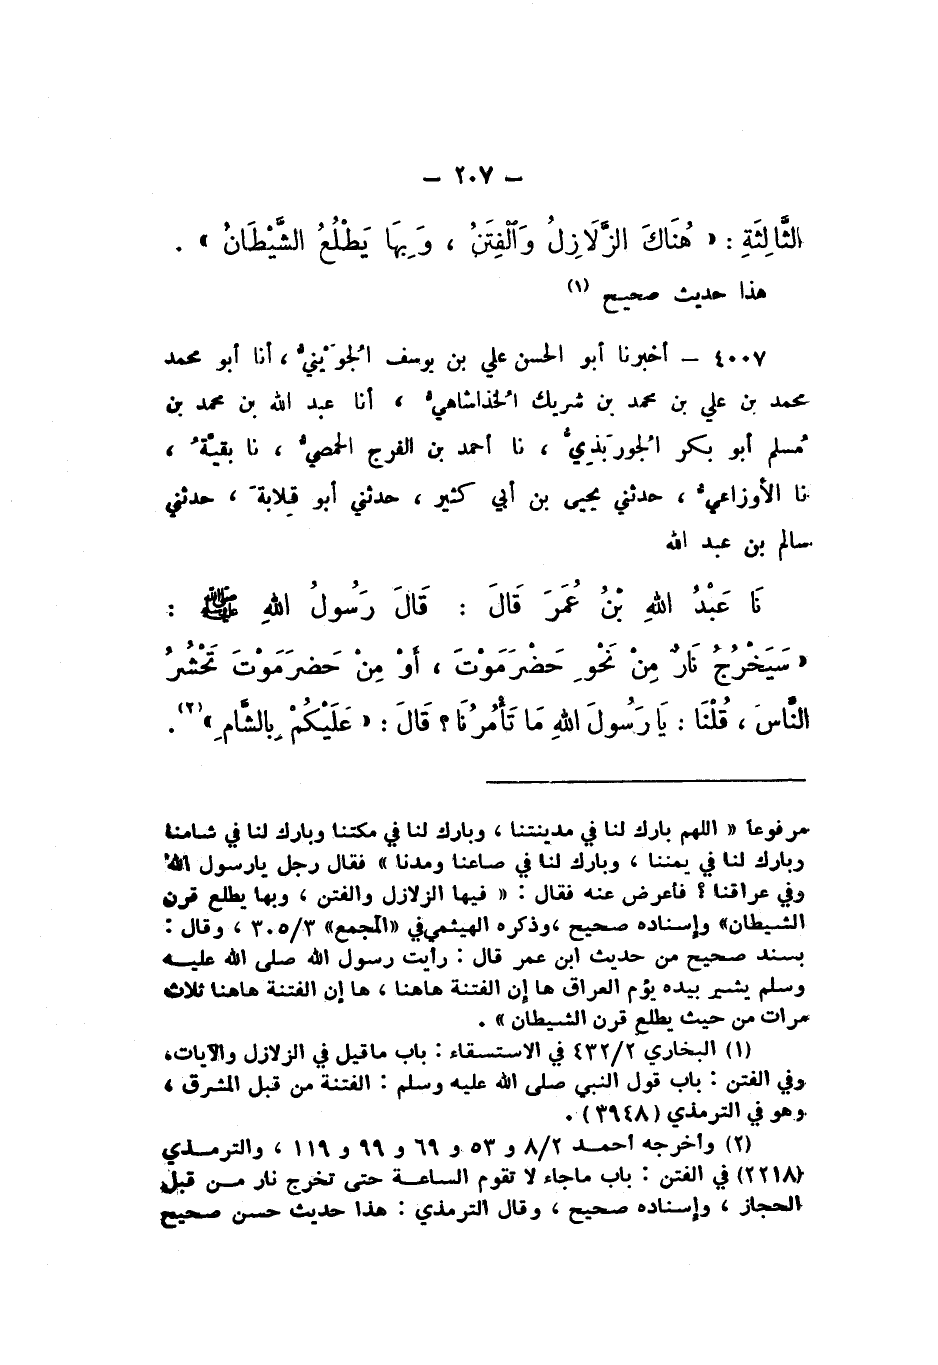 - ٢٠٧ -
الثَّالِثَةِ : « هُنَاكَ الزَّلَازِلُ وَالْفِتَنُ ، وَبِهَا يَطْلُعُ الشَّيْطَانُ » .
هذا حديث صحيح (١)
٤٠٠٧ - أخبرنا أبو الحسن علي بن يوسف الجُوَيْنيُّ ، أنا أبو محمد
محمد بن علي بن محمد بن شريك الخُذاشاهيُّ ، أنا عبد الله بن محمد بن
مُسلم أبو بكر الجُورَبَذِيُّ ، نا أحمد بن الفرج الحمصيُّ ، نا بقيَّةُ ،
نا الأوزاعيُّ ، حدثني يحيى بن أبي كثير ، حدثني أبو قلابةَ ، حدثني
سالم بن عبد الله
نَا عَبْدُ اللهِ بْنُ عُمَرَ قَالَ : قَالَ رَسُولُ اللهِ ﷺ :
« سَيَخْرُجُ نَارٌ مِنْ نَحْوِ حَضْرَمَوْتَ ، أَوْ مِنْ حَضْرَمَوْتَ تَحْشُرُ
النَّاسَ ، قُلْنَا : يَا رَسُولَ اللهِ مَا تَأْمُرُنَا ؟ قَالَ : « عَلَيْكُمْ بِالشَّامِ » (٢) .
مرفوعاً « اللهم بارك لنا في مدينتنا ، وبارك لنا في مكتنا وبارك لنا في شامنا
وبارك لنا في يمننا ، وبارك لنا في صاعنا ومدنا » فقال رجل يارسول الله
وفي عراقنا ؟ فأعرض عنه فقال : « فيها الزلازل والفتن ، وبها يطلع قرن
الشيطان» وإسناده صحيح ،وذكره الهيثمي في «المجمع» ٣٠٥/٣ ، وقال :
بسند صحيح من حديث ابن عمر قال : رأيت رسول الله صلى الله عليه
وسلم يشير بيده يؤم العراق ها إن الفتنة هاهنا ، ها إن الفتنة هاهنا ثلاث
مرات من حيث يطلع قرن الشيطان » .
(١) البخاري ٤٣٢/٢ في الاستسقاء : باب ماقيل في الزلازل والآيات،
وفي الفتن : باب قول النبي صلى الله عليه وسلم : الفتنة من قبل المشرق ،
وهو في الترمذي (٣٩٤٨) .
(٢) وأخرجه أحمد ٨/٢ و ٥٣ و ٦٩ و ٩٩ و ١١٩ ، والترمذي
(٢٢١٨) في الفتن : باب ماجاء لا تقوم الساعة حتى تخرج نار من قبل
الحجاز ، وإسناده صحيح ، وقال الترمذي : هذا حديث حسن صحيح